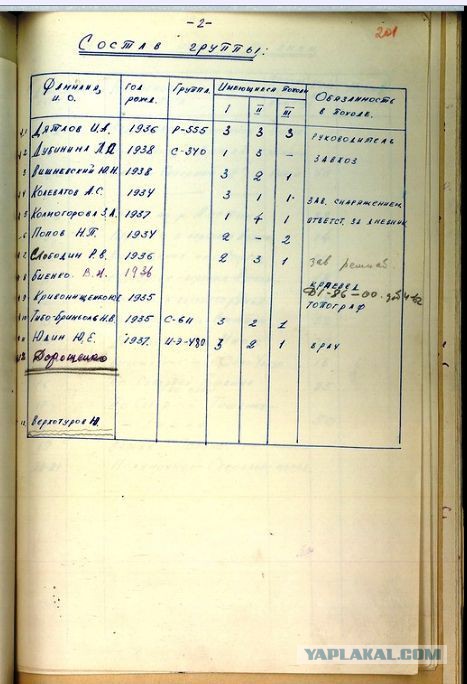 -2-
201
Состав группы:
Фамилия, и. о. Год рожд. Группа. Имеющиеся походы Обязанность в походе.
I II III
Дятлов И.А. 1936 Р-555 3 3 3 Руководитель
2 Дубинина Л.А. 1938 С-340 1 3 - Завхоз
3 Вишневский Ю.Н. 1938 3 2 1
4 Колеватов А.С. 1934 3 1 1 Зав. снаряжением
5 Колмогорова З.А. 1937 1 1 ответст. за дневник
6 Попов Н.П. 1934 2 - 2
Слободин Р.В. 1936 2 3 1 зав
8 Биенко В. 1936 краевед
Кривонищенко 1935 топограф
Тибо-Бриньоль Н.В. 1935 С-611 3 2 1
Юдин Ю.Е. 1937 И-Э-480 3 2 1 врач
12 Дорошенко
Верхотуров
YAPLAKAL.COM